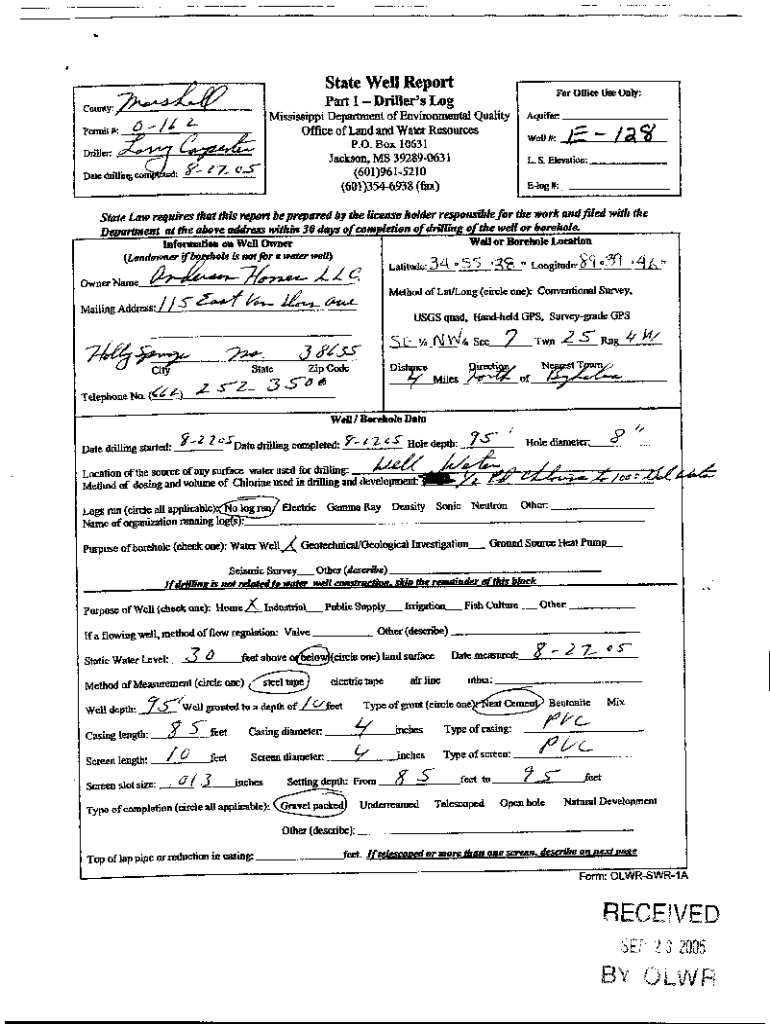 State Well Report
Part 1 – Driller's Log
Mississippi Department of Environmental Quality
Office of Land and Water Resources
P.O. Box 10631
Jackson, MS 39289-0631
(601)961-5210
(601)354-6938 (fax)
County: Marshall
Permit #: 0-162
Driller: Larry Carpenter
Date drilling completed: 8-27-05
For Office Use Only:
Aquifer:
Well #: E-128
L. S. Elevation:
E-log #:
State Law requires that this report be prepared by the license holder responsible for the work and filed with the
Department at the above address within 30 days of completion of drilling of the well or borehole.
Information on Well Owner
(Landowner if borehole is not for a water well)
Owner Name Anderson Homes L.L.C.
Mailing Address: 115 East Van Dorn ave
Holly Springs Ms. 38635
City State Zip Code
Telephone No. (662) 252-3500
Well or Borehole Location
Latitude: 34 ° 55 ' 38 " Longitude: 89 ° 39 ' 46 "
Method of Lat/Long (circle one): Conventional Survey,
USGS quad, Hand-held GPS, Survey-grade GPS
SE ¼ NW ¼ Sec 7 Twn 2S Rng 4W
Distance Direction Nearest Town
4 Miles North of Byhalia
Well / Borehole Data
Date drilling started: 8-27-05 Date drilling completed: 8-27-05 Hole depth: 95' Hole diameter: 8"
Location of the source of any surface water used for drilling: Well Water
Method of dosing and volume of Chlorine used in drilling and development: ½ Chlorine to Gal Water
Logs run (circle all applicable): No log run Electric Gamma Ray Density Sonic Neutron Other:
Name of organization running log(s):
Purpose of borehole (check one): Water Well X Geotechnical/Geological Investigation Ground Source Heat Pump
Seismic Survey Other (describe)
If drilling is not related to water well construction, skip the remainder of this block
Purpose of Well (check one): Home X Industrial Public Supply Irrigation Fish Culture Other:
If a flowing well, method of flow regulation: Valve Other (describe)
Static Water Level: 30 feet above or below (circle one) land surface Date measured: 8-27-05
Method of Measurement (circle one) steel tape electric tape air line other:
Well depth: 95' Well grouted to a depth of 10 feet Type of grout (circle one): Neat Cement Bentonite Mix
Casing length: 85 feet Casing diameter: 4 inches Type of casing: PVC
Screen length: 10 feet Screen diameter: 4 inches Type of screen: PVC
Screen slot size: .013 inches Setting depth: From 85 feet to 95 feet
Type of completion (circle all applicable): Gravel packed Underreamed Telescoped Open hole Natural Development
Other (describe):
Top of lap pipe or reduction in casing: feet. If telescoped or more than one screen, describe on next page
Form: OLWR-SWR-1A
RECEIVED
SEP 23 2005
BY OLWR